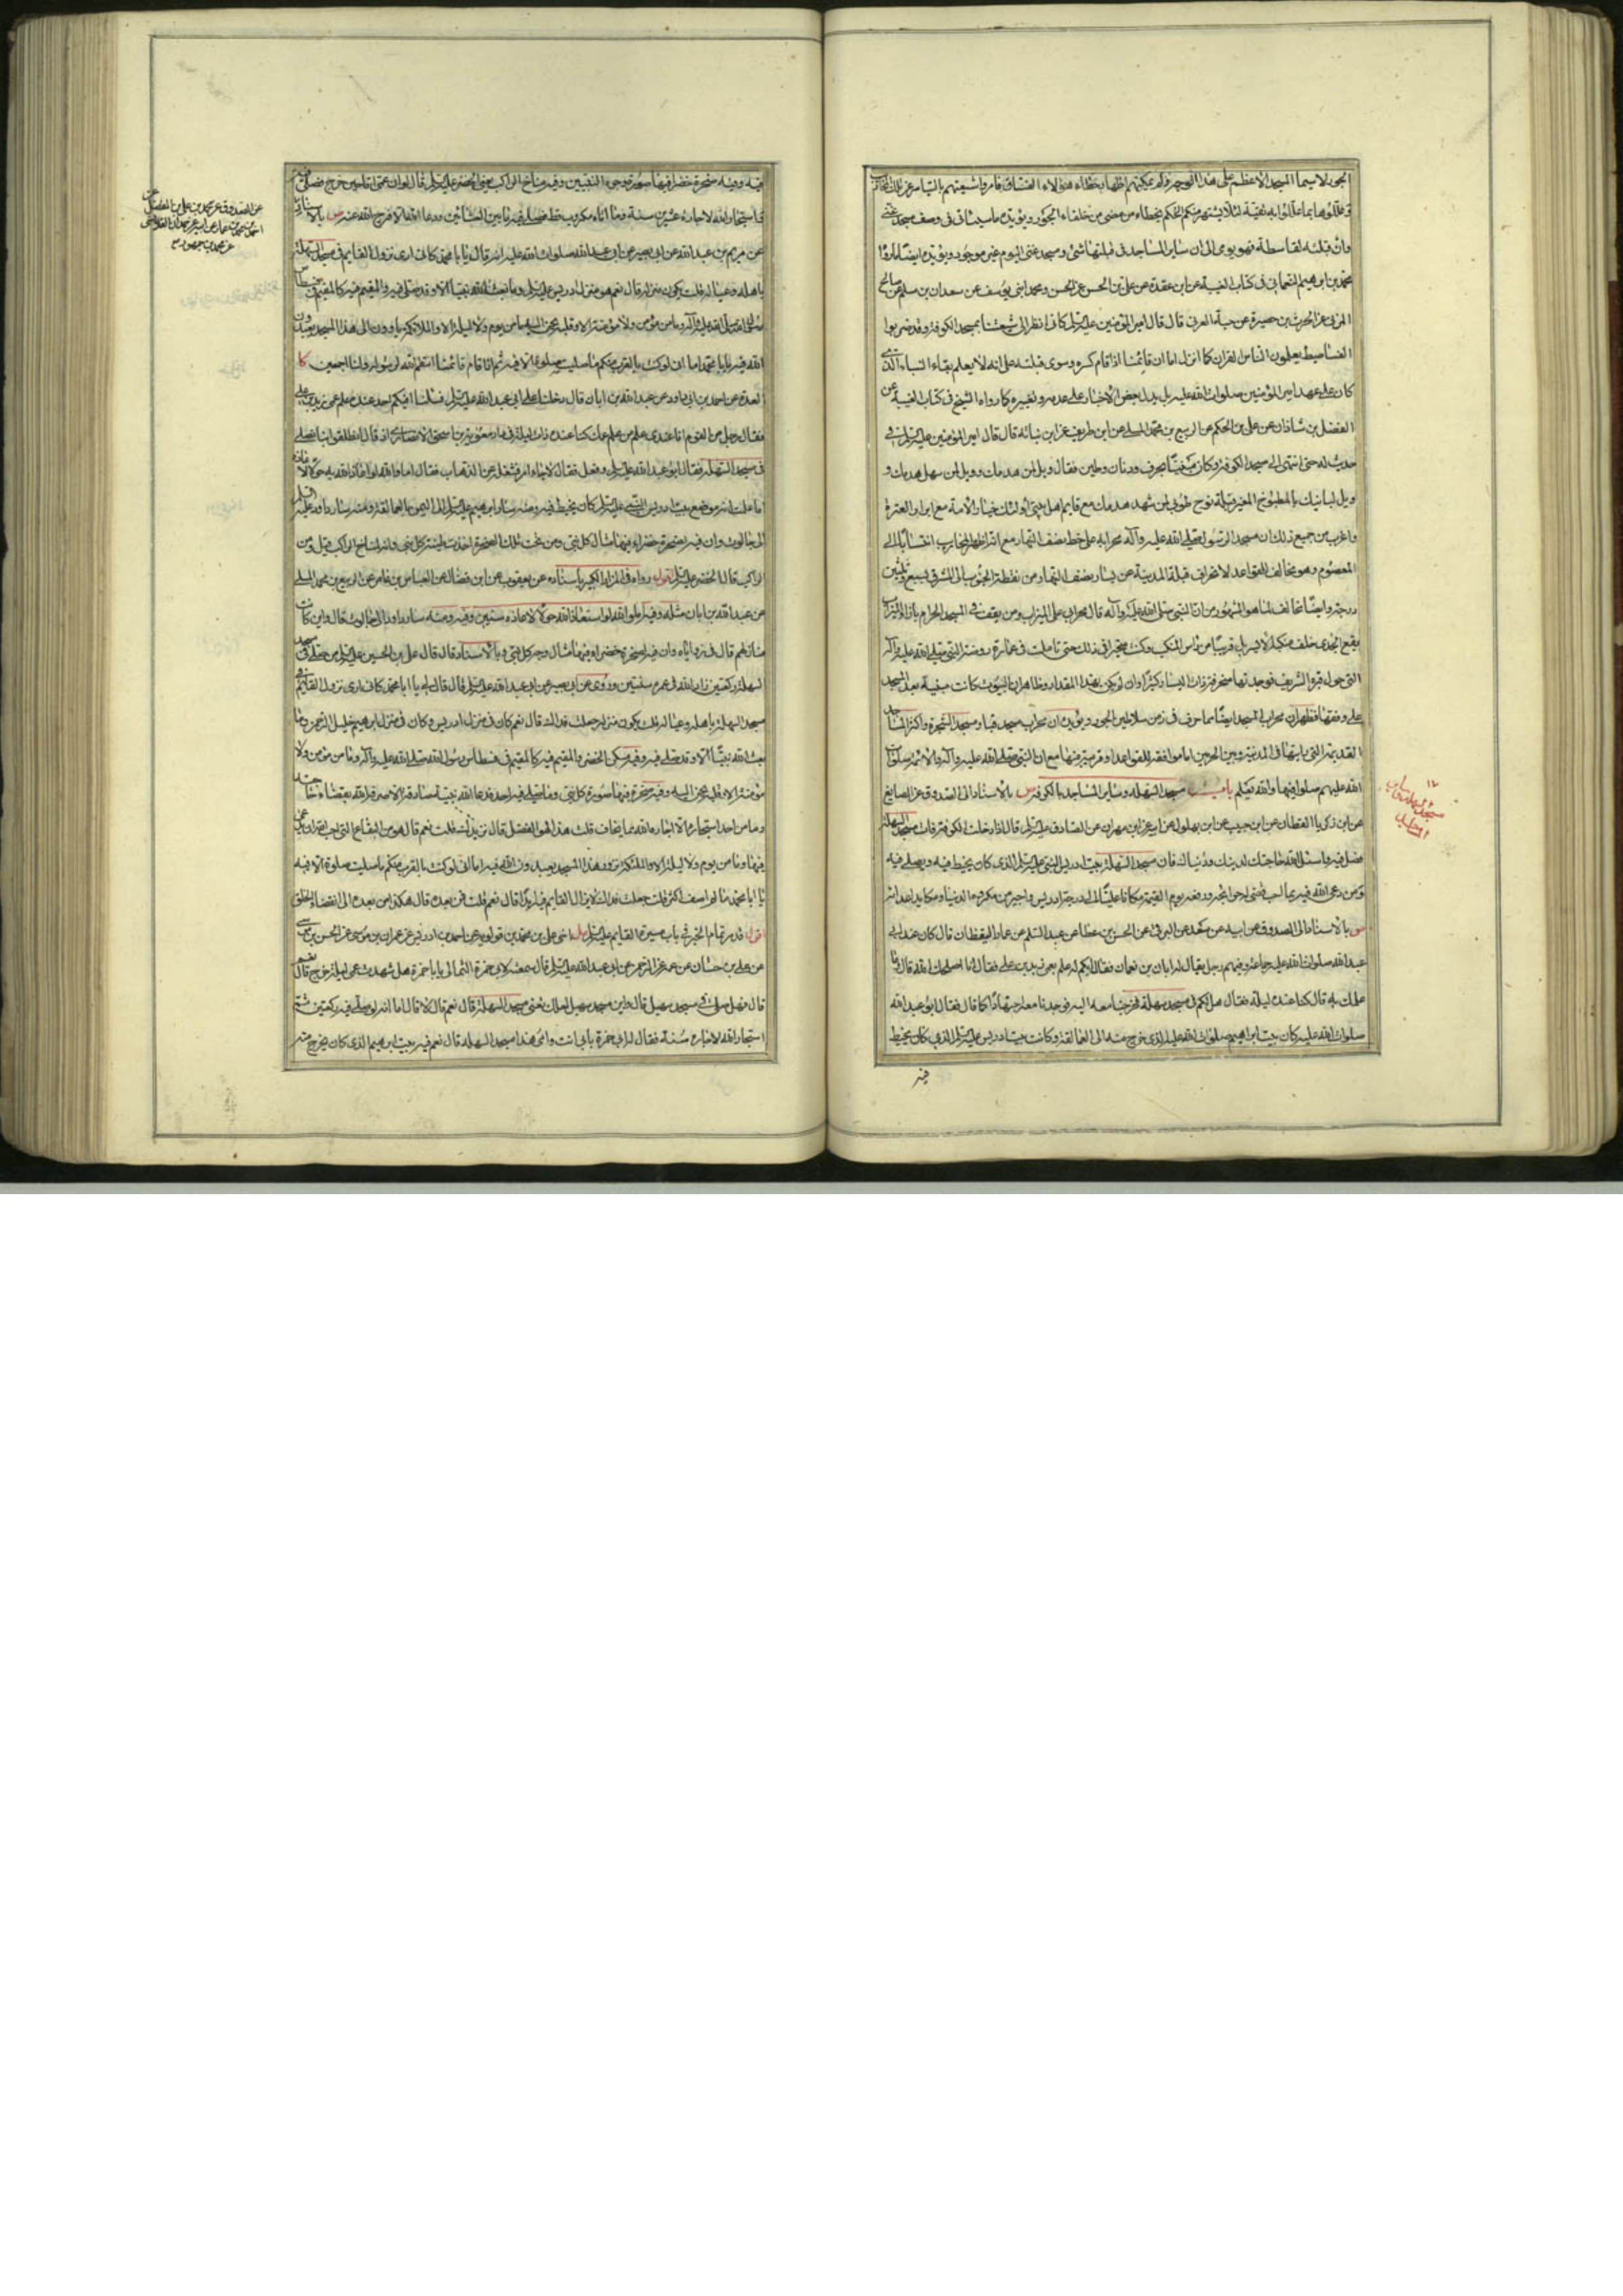 الجور لا سيما المسجد الاعظم على هذا الوجه ولم يمكنهم اظهار خطاء هؤلاء الفساق فامروا شيعتهم بالتياسر عن تلك المحاريب
وعللوها بما عللوا به تقية لئلا يشتهر منهم الحكم بخطاء من مضى من خلفاء الجور ويؤيده ما سيأتى فى وصف مسجد غنى
وان قبلته لقاسطة فهو يومى الى ان ساير المساجد فى قبلتها شئ ومسجد غنى اليوم غير موجود ويؤيده ايضا ما رواه
محمد بن ابرهيم النعمانى فى كتاب الغيبة عن ابن عقدة عن على بن الحسن عن الحسن ومحمد ابنى يوسف عن سعدان بن مسلم عن صالح
المزنى عن الحرث بن حصيرة عن حبة العرنى قال قال امير المؤمنين عليه السلم كانى انظر الى شيعتنا بمسجد الكوفة وقد ضربوا
الفساطيط يعلمون الناس القران كما انزل اما ان قائمنا اذا قام كسره وسوى قبلته على انه لا يعلم بقاء البناء الذى
كان على عهد امير المؤمنين صلوات الله عليه بل يدل بعض الاخبار على هدمه وتغييره كما رواه الشيخ فى كتاب الغيبة عن
الفضل بن شاذان عن على بن الحكم عن الربيع بن محمد المسلى عن ابن طريف عن ابن نباتة قال قال امير المؤمنين عليه السلم فى
حديث له حتى انتهى الى مسجد الكوفة وكان مبنيا بخزف ودنان وطين فقال ويل لمن هدمك وويل لمن سهل هدمك و
ويل لبانيك بالمطبوخ المغير قبلة نوح طوبى لمن شهد هدمك مع قايم اهل بيتى اولئك خيار الامة مع ابرار العترة
واغرب من جميع ذلك ان مسجد الرسول صلى الله عليه وآله محرابه على خط نصف النهار مع انه اظهر المحاريب انتسابا الى
المعصوم وهو مخالف للقواعد لانحراف قبلة المدينة عن يسار نصف النهار من نقطة الجنوب الى المشرق بسبع وثلثين
درجة وايضا مخالف لما هو المشهور من ان النبى صلى الله عليه وآله قال محرابى على الميزاب ومن يقف فى المسجد الحرام بازاء الميزاب
يقع الجدى خلف منكبه الايسر بل قريبا من راس المنكب وكنت متحيرا فى ذلك حتى تاملت فى عمارة روضة النبى صلى الله عليه وآله
التى حول قبره الشريف فوجدتها منحرفة ذات اليسار كثيرا وان لم يكن بهذا المقدار وظاهر ان البيوت كانت مبنية بعد المسجد
على وفقها فظهر ان محراب المسجد ايضا مما حرف فى زمن سلاطين الجور ويؤيده ان محراب مسجد قبا ومسجد الشجرة واكثر المساجد
القديمة التى رايتها فى المدينة وبين الحرمين اما موافقة للقواعد او قريبة منها مع ان النبى صلى الله عليه وآله والائمة صلوات
الله عليهم صلوا فيها والله يعلم باب مسجد السهلة وساير المساجد بالكوفة ص بالاسناد الى الصدوق عن الصايغ
عن ابن زكريا القطان عن ابن حبيب عن ابن بهلول عن ابيه عن ابن مهران عن الصادق عليه السلم قال اذا دخلت الكوفة فات مسجد السهلة
فصل فيه واسئل الله حاجتك لدينك ودنياك فان مسجد السهلة بيت ادريس النبى عليه السلم الذى كان يخيط فيه ويصلى فيه
ومن دعى الله فيه بما احب قضى له حوائجه ورفعه يوم القيمة مكانا عليا الى درجة ادريس واجير من مكروه الدنيا ومكايد اعدائه
ص بالاسناد الى الصدوق عن ابيه عن سعد عن البرقى عن الحسن بن عطا عن عبد السلم عن عمار اليقظان قال كان عند ابى
عبد الله صلوات الله عليه جماعة وفيهم رجل يقال له ابان بن نعمان فقال ايكم له علم بعمى زيد بن على فقال انا اصلحك الله قال وما
علمك به قال كنا عنده ليلة فقال هل لكم فى مسجد سهلة فخرجنا معه اليه فوجدنا معه اجتهادا كما قال فقال ابو عبد الله
صلوات الله عليه كان بيت ابرهيم صلوات الله عليه الذى خرج منه الى العمالقة وكانت بيت ادريس عليه السلم الذى كان يخيط
فيه
١٢
مسجد السهلة وساير
المساجد
فيه وفيه صخرة خضرا فيها صورة وجوه النبيين وفيه مناخ الراكب يعنى الخضر عليه السلم ثم قال لو ان عمى اتاه حين خرج فصلى فيه
فاستجار الله لاجاره عشرين سنة وما اتاه مكروب قط فصلى فيه ما بين العشائين ودعا الله الا فرج الله عنه ص بالاسناد
عن مريم بن عبد الله عن ابى بصير عن ابى عبد الله صلوات الله عليه انه قال يا با محمد كانى ارى نزول القايم فى مسجد السهلة
باهله وعياله قلت يكون منزله قال نعم هو منزل ادريس عليه السلم وما بعث الله نبيا الا وقد صلى فيه والمقيم فيه كالمقيم فى فسطاط
رسول الله صلى الله عليه وآله وما من مؤمن ولا مؤمنة الا وقلبه يحن اليه وما من يوم ولا ليلة الا والملائكة ياوون الى هذا المسجد يعبدون
الله فيه يا با محمد اما انى لو كنت بالقرب منكم ما صليت صلوة الا فيه ثم اذا قام قائمنا انتقم الله لرسوله ولنا اجمعين كا
العدة عن احمد بن ابى داود عن عبد الله بن ابان قال دخلنا على ابى عبد الله عليه السلم فسئلنا افيكم احد عنده علم عمى زيد بن على
فقال رجل من القوم انا عندى علم من علم عمك كنا عنده ذات ليلة فى دار معوية بن اسحق الانصارى اذ قال انطلقوا بنا نصلى
فى مسجد السهلة فقال ابو عبد الله عليه السلم وفعل فقال لا جاءه امر فشغله عن الذهاب فقال اما والله لو اعاذ الله به حولا لاعاذه
اما علمت انه موضع بيت ادريس النبى عليه السلم كان يخيط فيه ومنه سار ابرهيم عليه السلم الى اليمن بالعمالقة ومنه سار داود عليه السلم
الى جالوت وان فيه لصخرة خضراء فيها مثال كل نبى ومن تحت تلك الصخرة اخذت طينة كل نبى وانه لمناخ الراكب قيل ومن
الراكب قال الخضر عليه السلم اقول رواه فى المزار الكبير باسناده عن يعقوب عن ابن فضال عن العباس بن عامر عن الربيع بن محمد المسلى
عن عبد الله بن ابان مثله وفيه اما والله لو استعاذ الله حولا لاعاذه سنتين وفيه ومنه سار داود الى جالوت قال واين كانت
منازلهم قال فى زواياه وان فيه لصخرة خضراء فيها مثال وجه كل نبى وبالاسناد قال قال على بن الحسين عليه السلم من صلى فى مسجد
السهلة ركعتين زاد الله فى عمره سنتين وروى عن ابى بصير عن ابى عبد الله عليه السلم قال قال لى يا ابا محمد كانى ارى نزول القايم فى
مسجد السهلة باهله وعياله قلت يكون منزله جعلت فداك قال نعم كان فى منزل ادريس وكان فى منزل ابرهيم خليل الرحمن وما
بعث الله نبيا الا وقد صلى فيه وفيه مسكن الخضر والمقيم فيه كالمقيم فى فسطاط رسول الله صلى الله عليه وآله وما من مؤمن ولا
مؤمنة الا وقلبه يحن اليه وفيه صخرة فيها صورة كل نبى وما صلى فيه احد فدعا الله بنية صادقة الا صرفه الله بقضاء حاجته
وما من احد استجاره الا اجاره الله مما يخاف قلت هذا لهو الفضل قال نزيدك قلت نعم قال هو من البقاع التى احب الله ان يدعى
فيها وما من يوم ولا ليلة الا والملئكة تزور هذا المسجد يعبدون الله فيه اما انى لو كنت بالقرب منكم ما صليت صلوة الا فيه
يا ابا محمد ما لم اصف اكثر قلت جعلت فداك لا يزال القايم فيه ابدا قال نعم قلت فمن بعده قال هكذا من بعده الى انقضاء الخلق
اقول قد مر تمام الخبر فى باب سيرة القايم عليه السلم مل اخى على بن محمد بن قولويه عن احمد بن ادريس عن عمران بن موسى عن الحسن بن موسى
عن على بن حسان عن عمه عبد الرحمن عن ابى عبد الله عليه السلم قال سمعته يقول لابى حمزة الثمالى يا با حمزة هل شهدت عمى ليلة خرج قال نعم
قال فهل صلى فى مسجد سهيل قال واين مسجد سهيل لعلك تعنى مسجد السهلة قال نعم قال لا قال اما انه لو صلى فيه ركعتين ثم
استجار الله لاجاره سنة فقال له ابو حمزة بابى انت وامى هذا مسجد السهلة قال نعم فيه بيت ابرهيم الذى كان يخرج منه
عن الصدوق عن محمد بن على بن المفضل عن
احمد بن محمد بن عمار عن ابيه عن حمدان القلانسى
عن محمد بن جمهور